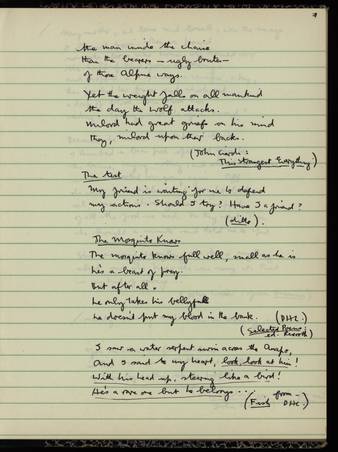 the man inside the chaise
than the bearers — ugly brutes —
of those Alpine ways.
Yet the weight falls on all mankind
the day the wolf attacks.
Milord had great griefs on his mind
they, milord upon their backs.
(John Ciardi:
This Strangest Everything)
The test
My friend is waiting for me to defend
my actions. Should I try? Have I a friend?
(ditto).
The Mosquito Knows
The mosquito knows full well, small as he is
he's a beast of prey.
But after all.
he only takes his bellyfull
he doesn't put my blood in the bank. (DHL:)
(Selected Poems
ed. Rexroth)
I saw a water serpent swim across the Anapo,
And I said to my heart, look, look at him!
With his head up, steering like a bird!
He's a rare one but he belongs....
(Fish from—
DHL:)